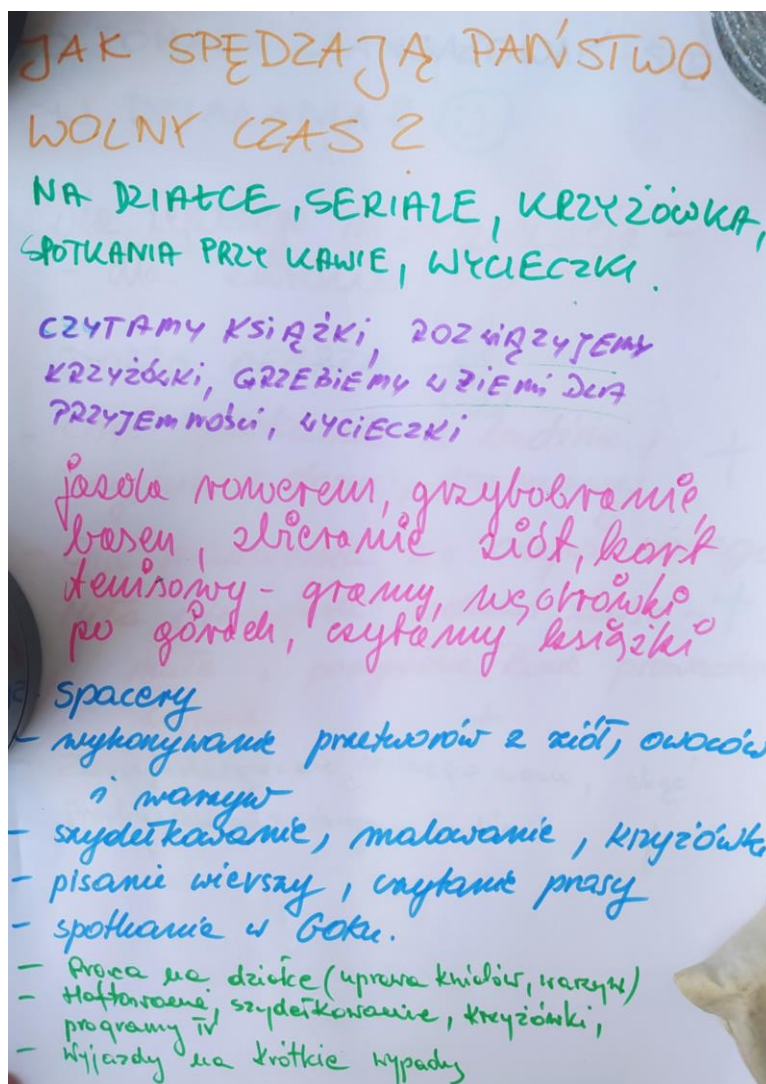 JAK SPĘDZAJĄ PAŃSTWO
WOLNY CZAS ?
NA DZIAŁCE, SERIALE, KRZYŻÓWKA,
SPOTKANIA PRZY KAWIE, WYCIECZKI.
CZYTAMY KSIĄŻKI, ROZWIĄZYJEMY
KRZYŻÓWKI, GRZEBIEMY W ZIEMI DLA
PRZYJEMNOŚCI, WYCIECZKI
jazda rowerem, grzybobranie,
basen, zbieranie ziół, kort
tenisowy - gramy, wędrówki
po górach, czytamy książki
spacery
- wykonywanie przetworów z ziół, owoców
i warzyw
- szydełkowanie, malowanie, krzyżówki
- pisanie wierszy, czytanie prasy
- spotkanie w Goku.
- Praca na działce (uprawa kwiatów, warzyw)
- Haftowanie, szydełkowanie, krzyżówki,
programy TV
- Wyjazdy na krótkie wypady